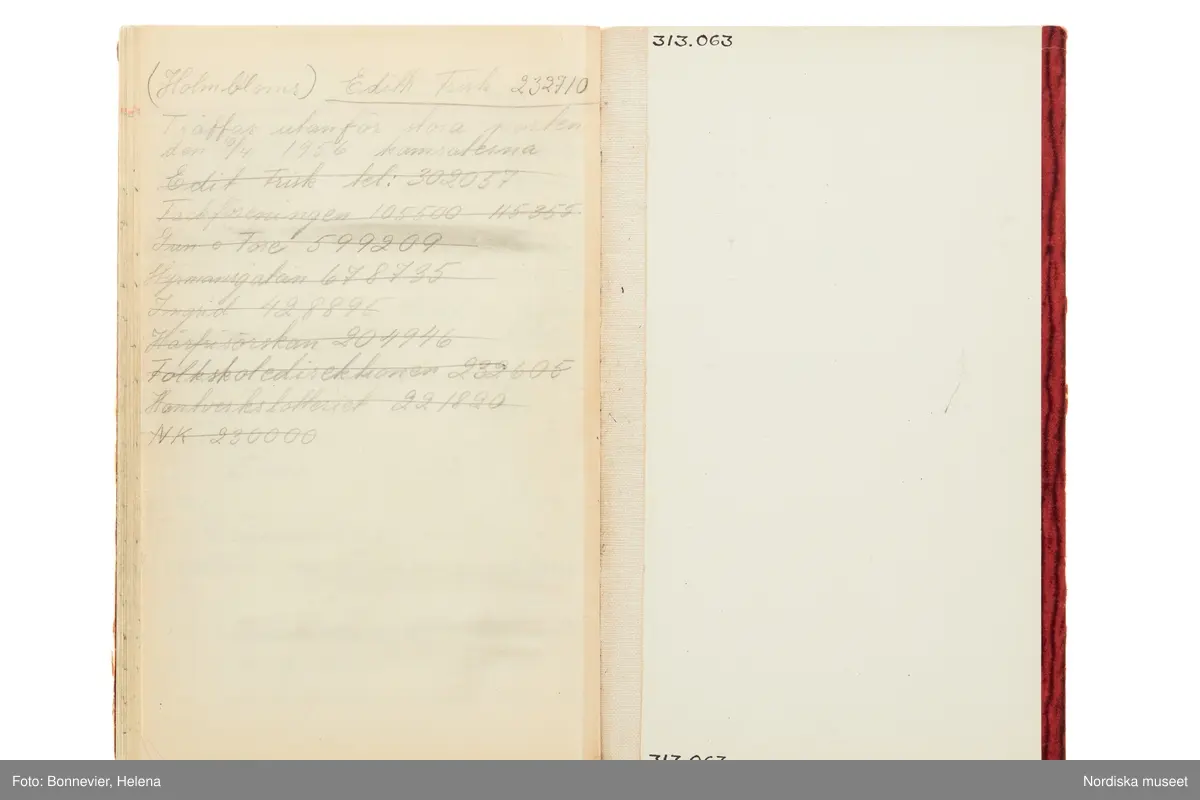 (Holmbloms) Edith Frisk 232710
Träffas utanför stora porten
den 9/4 1956 kamraterna
Edit Frisk tel: 302057
Fackföreningen 105500 115355
Gun o Tore 599209
678735
Ingrid 428896
Hårfrisörskan 204946
Folkskoledirektionen 232605
Hantverkslotteriet 221820
NK 280000
313.063
313.063
Foto: Bonnevier, Helena
Nordiska museet